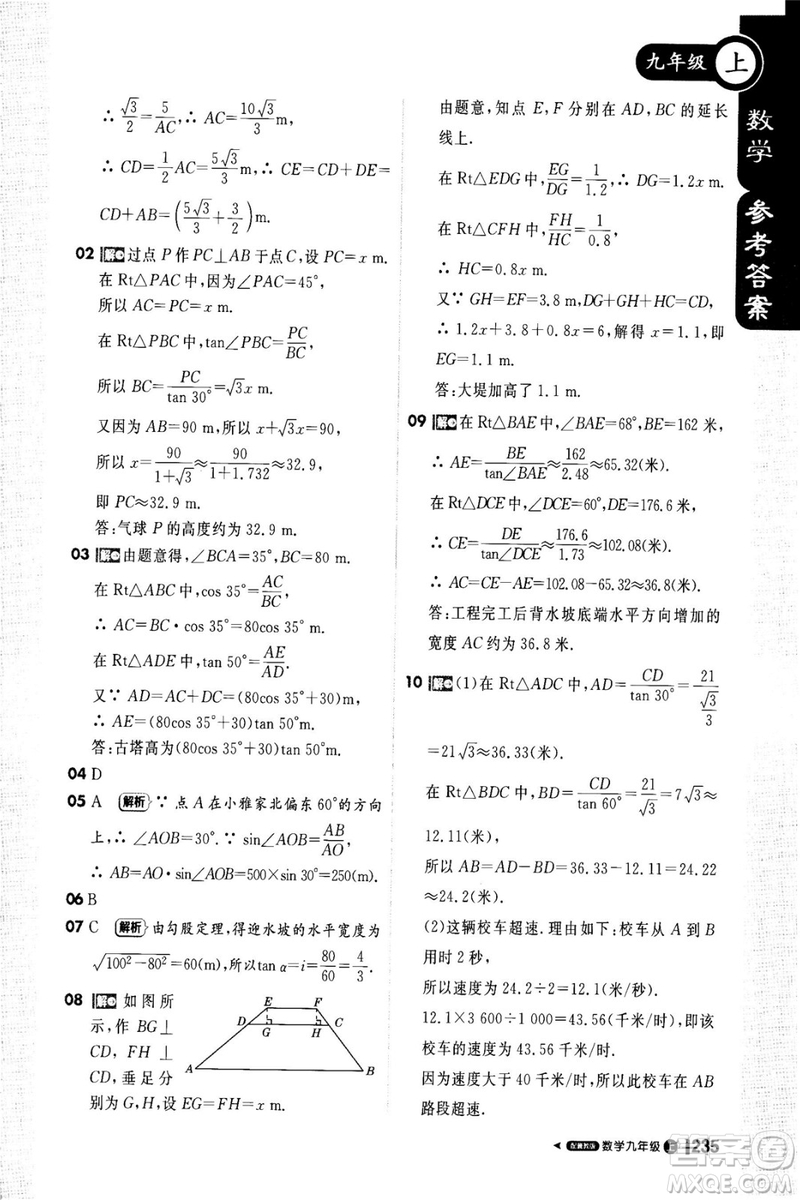 九年级 上
数学 参考答案
∴ √3/2=5/AC,∴ AC=10√3/3 m.
∴ CD=1/2AC=5√3/3 m.∴ CE=CD+DE=
CD+AB=(5√3/3+3/2) m.
02 解 过点 P 作 PC⊥AB 于点 C,设 PC=x m.
在 Rt△PAC 中,∵∠PAC=45°,
所以 AC=PC=x m.
在 Rt△PBC 中,∵tan∠PBC=PC/BC,
所以 BC=PC/tan 30°=√3x m.
又因为 AB=90 m,所以 x+√3x=90,
所以 x=90/(1+√3)≈90/(1+1.732)≈32.9,
即 PC≈32.9 m.
答:气球 P 的高度约为 32.9 m.
03 解 由题意得,∠BCA=35°,BC=80 m.
在 Rt△ABC 中,cos 35°=AC/BC,
∴ AC=BC·cos 35°=80cos 35°.
在 Rt△ADE 中,tan 50°=AE/AD.
又∵ AD=AC+DC=(80cos 35°+30) m,
∴ AE=(80cos 35°+30)tan 50° m.
答:古塔高为(80cos 35°+30)tan 50° m.
04 D
05 A 解析 ∵ 点 A 在小雅家北偏东 60°的方向
上,∴ ∠AOB=30°.∵ sin∠AOB=AB/AO,
∴ AB=AO·sin∠AOB=500×sin 30°=250(m).
06 B
07 C 解析 由勾股定理,得迎水坡的水平宽度为
√(100²-80²)=60(m),所以tan α=i=80/60=4/3.
08 解 如图所
示,作 BG⊥
CD,FH⊥
CD,垂足分
别为 G,H,设 EG=FH=x m.
E F
D G H C
A B
由题意,知点 E,F 分别在 AD,BC 的延长
线上.
在 Rt△EDG 中,EG/DG=1/1.2,∴ DG=1.2x m.
在 Rt△CFH 中,FH/HC=1/0.8,
∴ HC=0.8x m.
又∵ GH=EF=3.8 m,DG+GH+HC=9.8 m,
∴ 1.2x+3.8+0.8x=6,解得 x=1.1,即
EG=1.1 m.
答:大堤加高了 1.1 m.
09 解 在 Rt△BAE 中,∠BAE=68°,BE=162 米,
∴ AE=BE/tan∠BAE≈162/2.48≈65.32(米).
在 Rt△DCE 中,∠DCE=60°,DE=176.6 米,
∴ CE=DE/tan∠DCE≈176.6/1.73≈102.08(米).
∴ AC=CE-AE≈102.08-65.32≈36.8(米).
答:工程完工后背水坡底端水平方向增加的
宽度 AC 约为 36.8 米.
10 解 (1)在 Rt△ADC 中,AD=CD/tan 30°=21/(√3/3)
=21√3≈36.33(米).
在 Rt△BDC 中,BD=CD/tan 60°=21/√3=7√3≈
12.11(米).
所以 AB=AD-BD=36.33-12.11=24.22
≈24.2(米).
(2)这辆校车超速.理由如下:校车从 A 到 B
用时 2 秒,
所以速度为 24.2÷2=12.1(米/秒).
12.1×3 600÷1 000=43.56(千米/时),即该
校车的速度为 43.56 千米/时.
因为速度大于 40 千米/时,所以此校车在 AB
路段超速.
配冀教版 数学九年级 上 235
答案卷
MXQE.COM